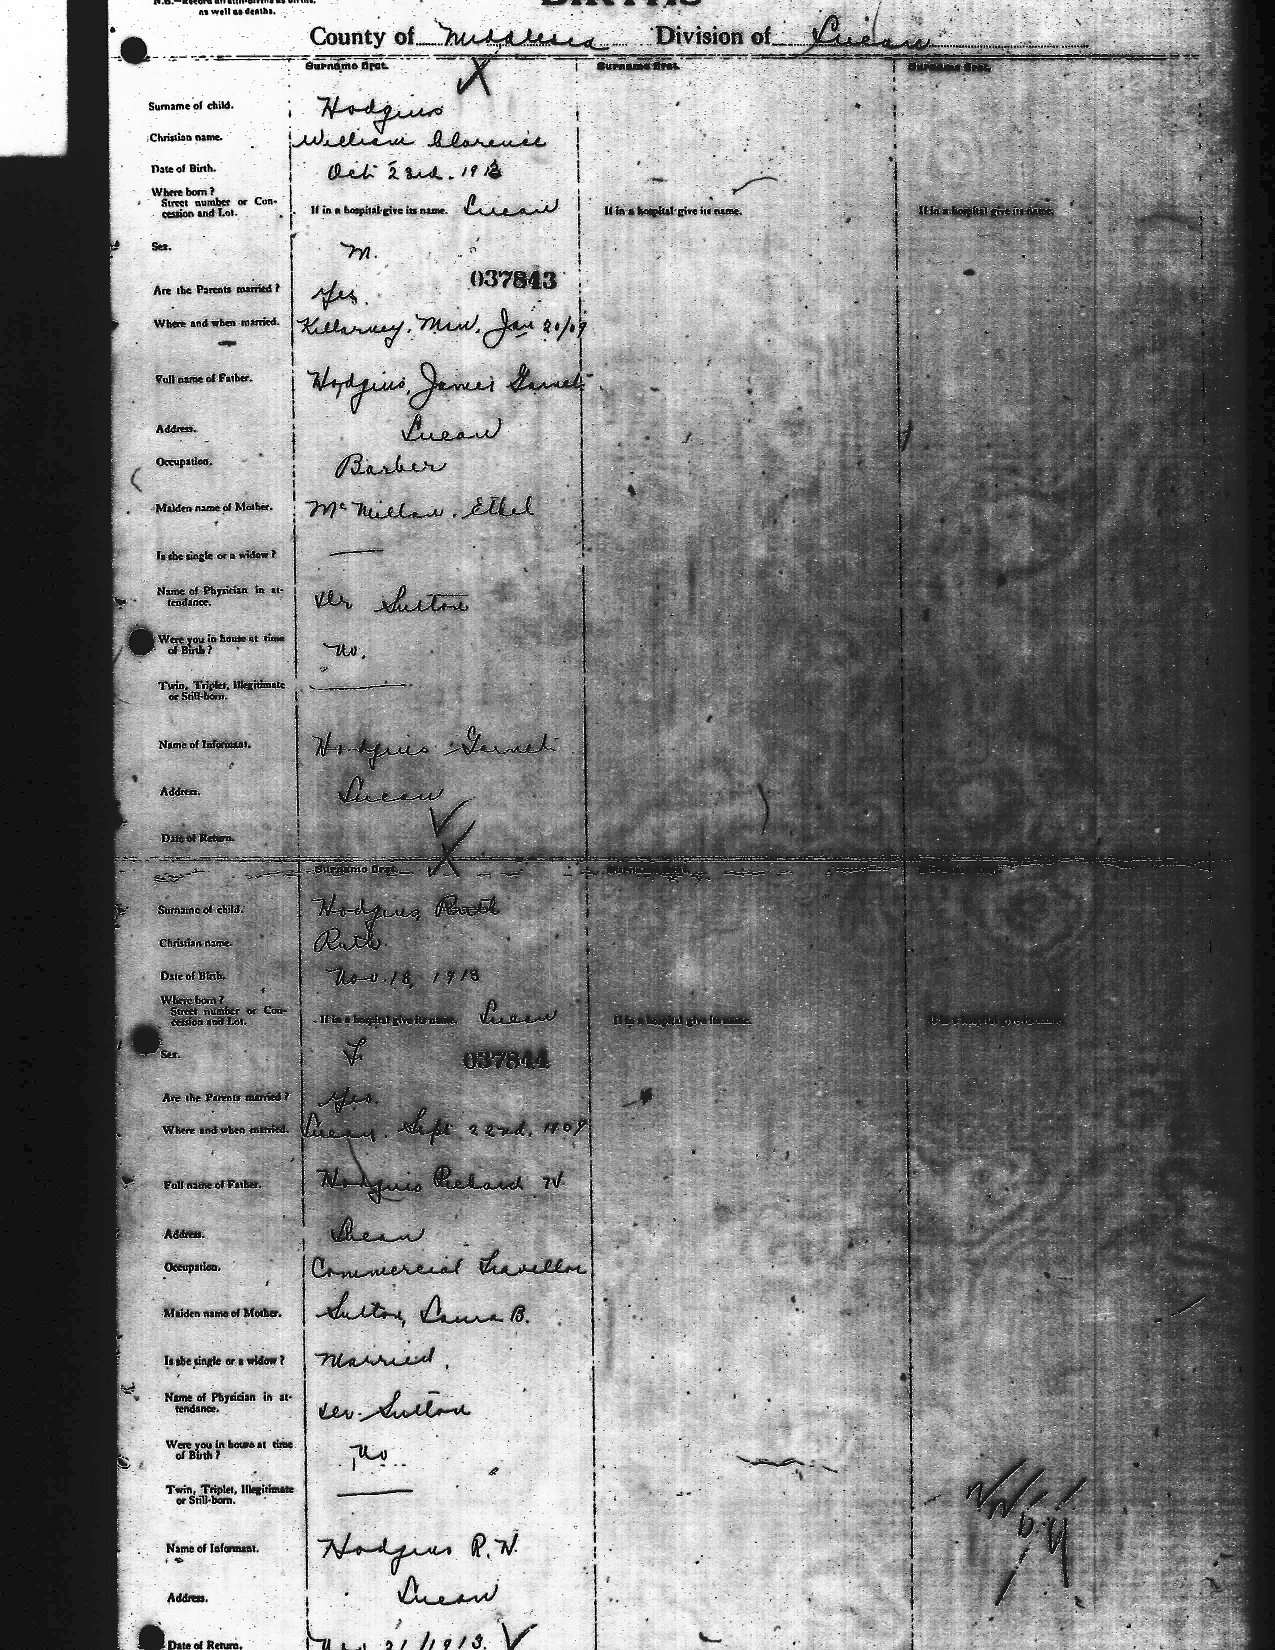 N.B.—Record all still-births as births,
as well as deaths.
BIRTHS
County of Middlesex Division of Lucan
Surname first. Surname first. Surname first.
Surname of child. Hodgins
Christian name. William Clarence
Date of Birth. Oct 23rd. 1913
Where born?
Street number or Con-
cession and Lot. If in a hospital give its name. Lucan If in a hospital give its name. If in a hospital give its name.
Sex. M.
037843
Are the Parents married? Yes.
Where and when married. Killarney, Man, Jan 20/09
Full name of Father. Hodgins, James Garnet
Address. Lucan
Occupation. Barber
Maiden name of Mother. McMillan, Ethel
Is she single or a widow? —
Name of Physician in at-
tendance. Sutton
Were you in house at time
of Birth? No.
Twin, Triplet, Illegitimate
or Still-born. —
Name of Informant. Hodgins Garnet
Address. Lucan
Date of Return.
Surname first. Surname first. Surname first.
Surname of child. Hodgins Ruth
Christian name. Ruth
Date of Birth. Nov. 18, 1913
Where born?
Street number or Con-
cession and Lot. If in a hospital give its name. Lucan If in a hospital give its name. If in a hospital give its name.
Sex. F.
037844
Are the Parents married? Yes.
Where and when married. Lucan. Sept 22nd, 1909
Full name of Father. Hodgins Richard H.
Address. Lucan
Occupation. Commercial Traveller
Maiden name of Mother. Sutton, Laura B.
Is she single or a widow? Married.
Name of Physician in at-
tendance. Sutton
Were you in house at time
of Birth? No
Twin, Triplet, Illegitimate
or Still-born. —
Name of Informant. Hodgins R. H.
Address. Lucan
Date of Return. 21/1913.